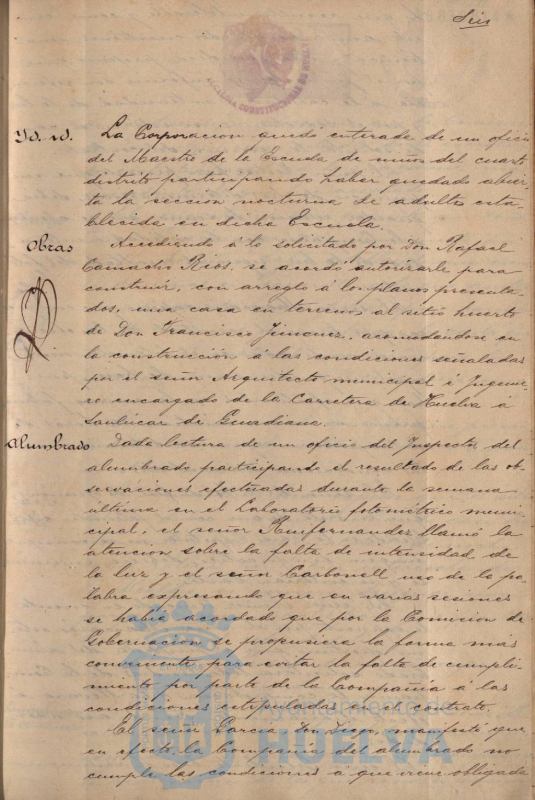 Seis
ALCALDIA CONSTITUCIONAL DE HUELVA
Yd. id. La Corporacion quedó enterada de un oficio
del Maestro de la Escuela de niños del cuarto
distrito participando haber quedado abier-
ta la seccion nocturna de adultos esta-
blecida en dicha Escuela.
Obras Accediendo á lo solicitado por Don Rafael
Camacho Rios, se acordó autorizarle para
construir, con arreglo á los planos presenta-
dos, una casa en terrenos al sitio huerto
de Don Francisco Jimenez, acomodándose en
la construcción á las condiciones señaladas
por el señor Arquitecto municipal é Ingenie-
ro encargado de la Carretera de Huelva á
Sanlúcar de Guadiana.
Alumbrado Dada lectura de un oficio del Inspector del
alumbrado participando el resultado de las ob-
servaciones efectuadas durante la semana
última en el Laboratorio fotométrico muni-
cipal, el señor llamó la
atencion sobre la falta de intensidad de
la luz y el señor Carbonell uso de la pa-
labra expresando que en varias sesiones
se había acordado que por la Comision de
Gobernacion se propusiera la forma más
conveniente para evitar la falta de cumpli-
miento por parte de la Compañía á las
condiciones estipuladas en el contrato.
El señor García Don Diego, manifestó que
en efecto la Compañía del alumbrado no
cumple las condiciones á que viene obligada
Ayuntamiento de
HUELVA